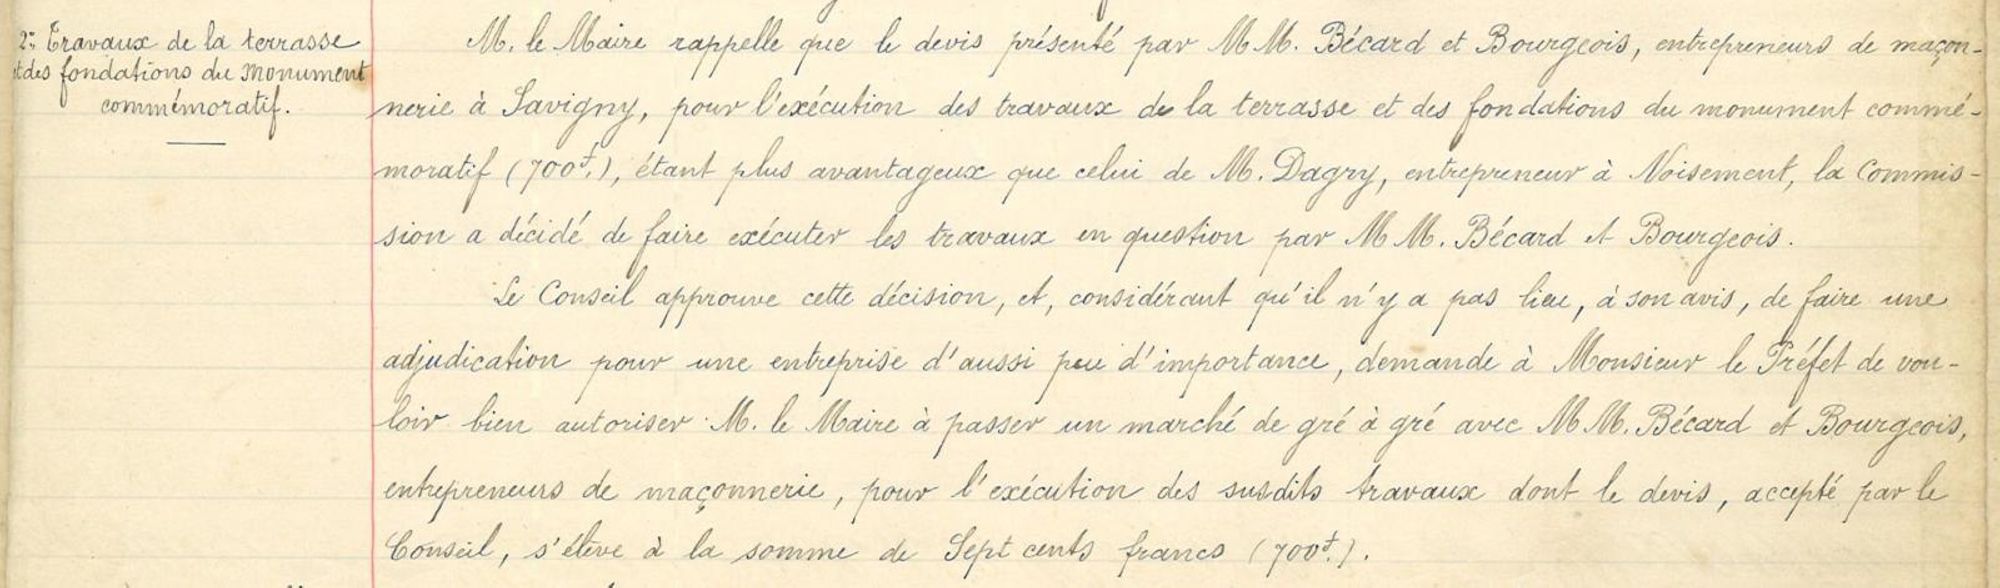 2°: Travaux de la terrasse
et des fondations du monument
commémoratif.
M. le Maire rappelle que le devis présenté par MM. Bécard et Bourgeois, entrepreneurs de maçon-
nerie à Savigny, pour l'exécution des travaux de la terrasse et des fondations du monument commé-
moratif (700f.), étant plus avantageux que celui de M. Dagry, entrepreneur à Noisement, la Commis-
sion a décidé de faire exécuter les travaux en question par MM. Bécard et Bourgeois.
Le Conseil approuve cette décision, et, considérant qu'il n'y a pas lieu, à son avis, de faire une
adjudication pour une entreprise d'aussi peu d'importance, demande à Monsieur le Préfet de vou-
loir bien autoriser M. le Maire à passer un marché de gré à gré avec MM. Bécard et Bourgeois,
entrepreneurs de maçonnerie, pour l'exécution des susdits travaux dont le devis, accepté par le
Conseil, s'élève à la somme de Sept cents francs (700f.).